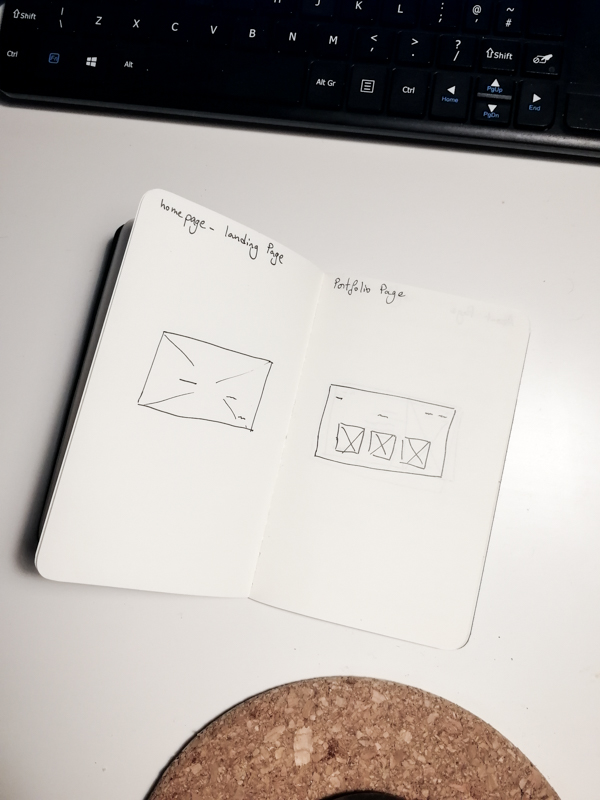 H J K L : ; @ ~ #
⇧Shift | \ Z X C V B N M < , > . ? / ⇧Shift
Ctrl Fn Alt Alt Gr Ctrl Home PgUp PgDn End
homepage - landing Page
Portfolio Page